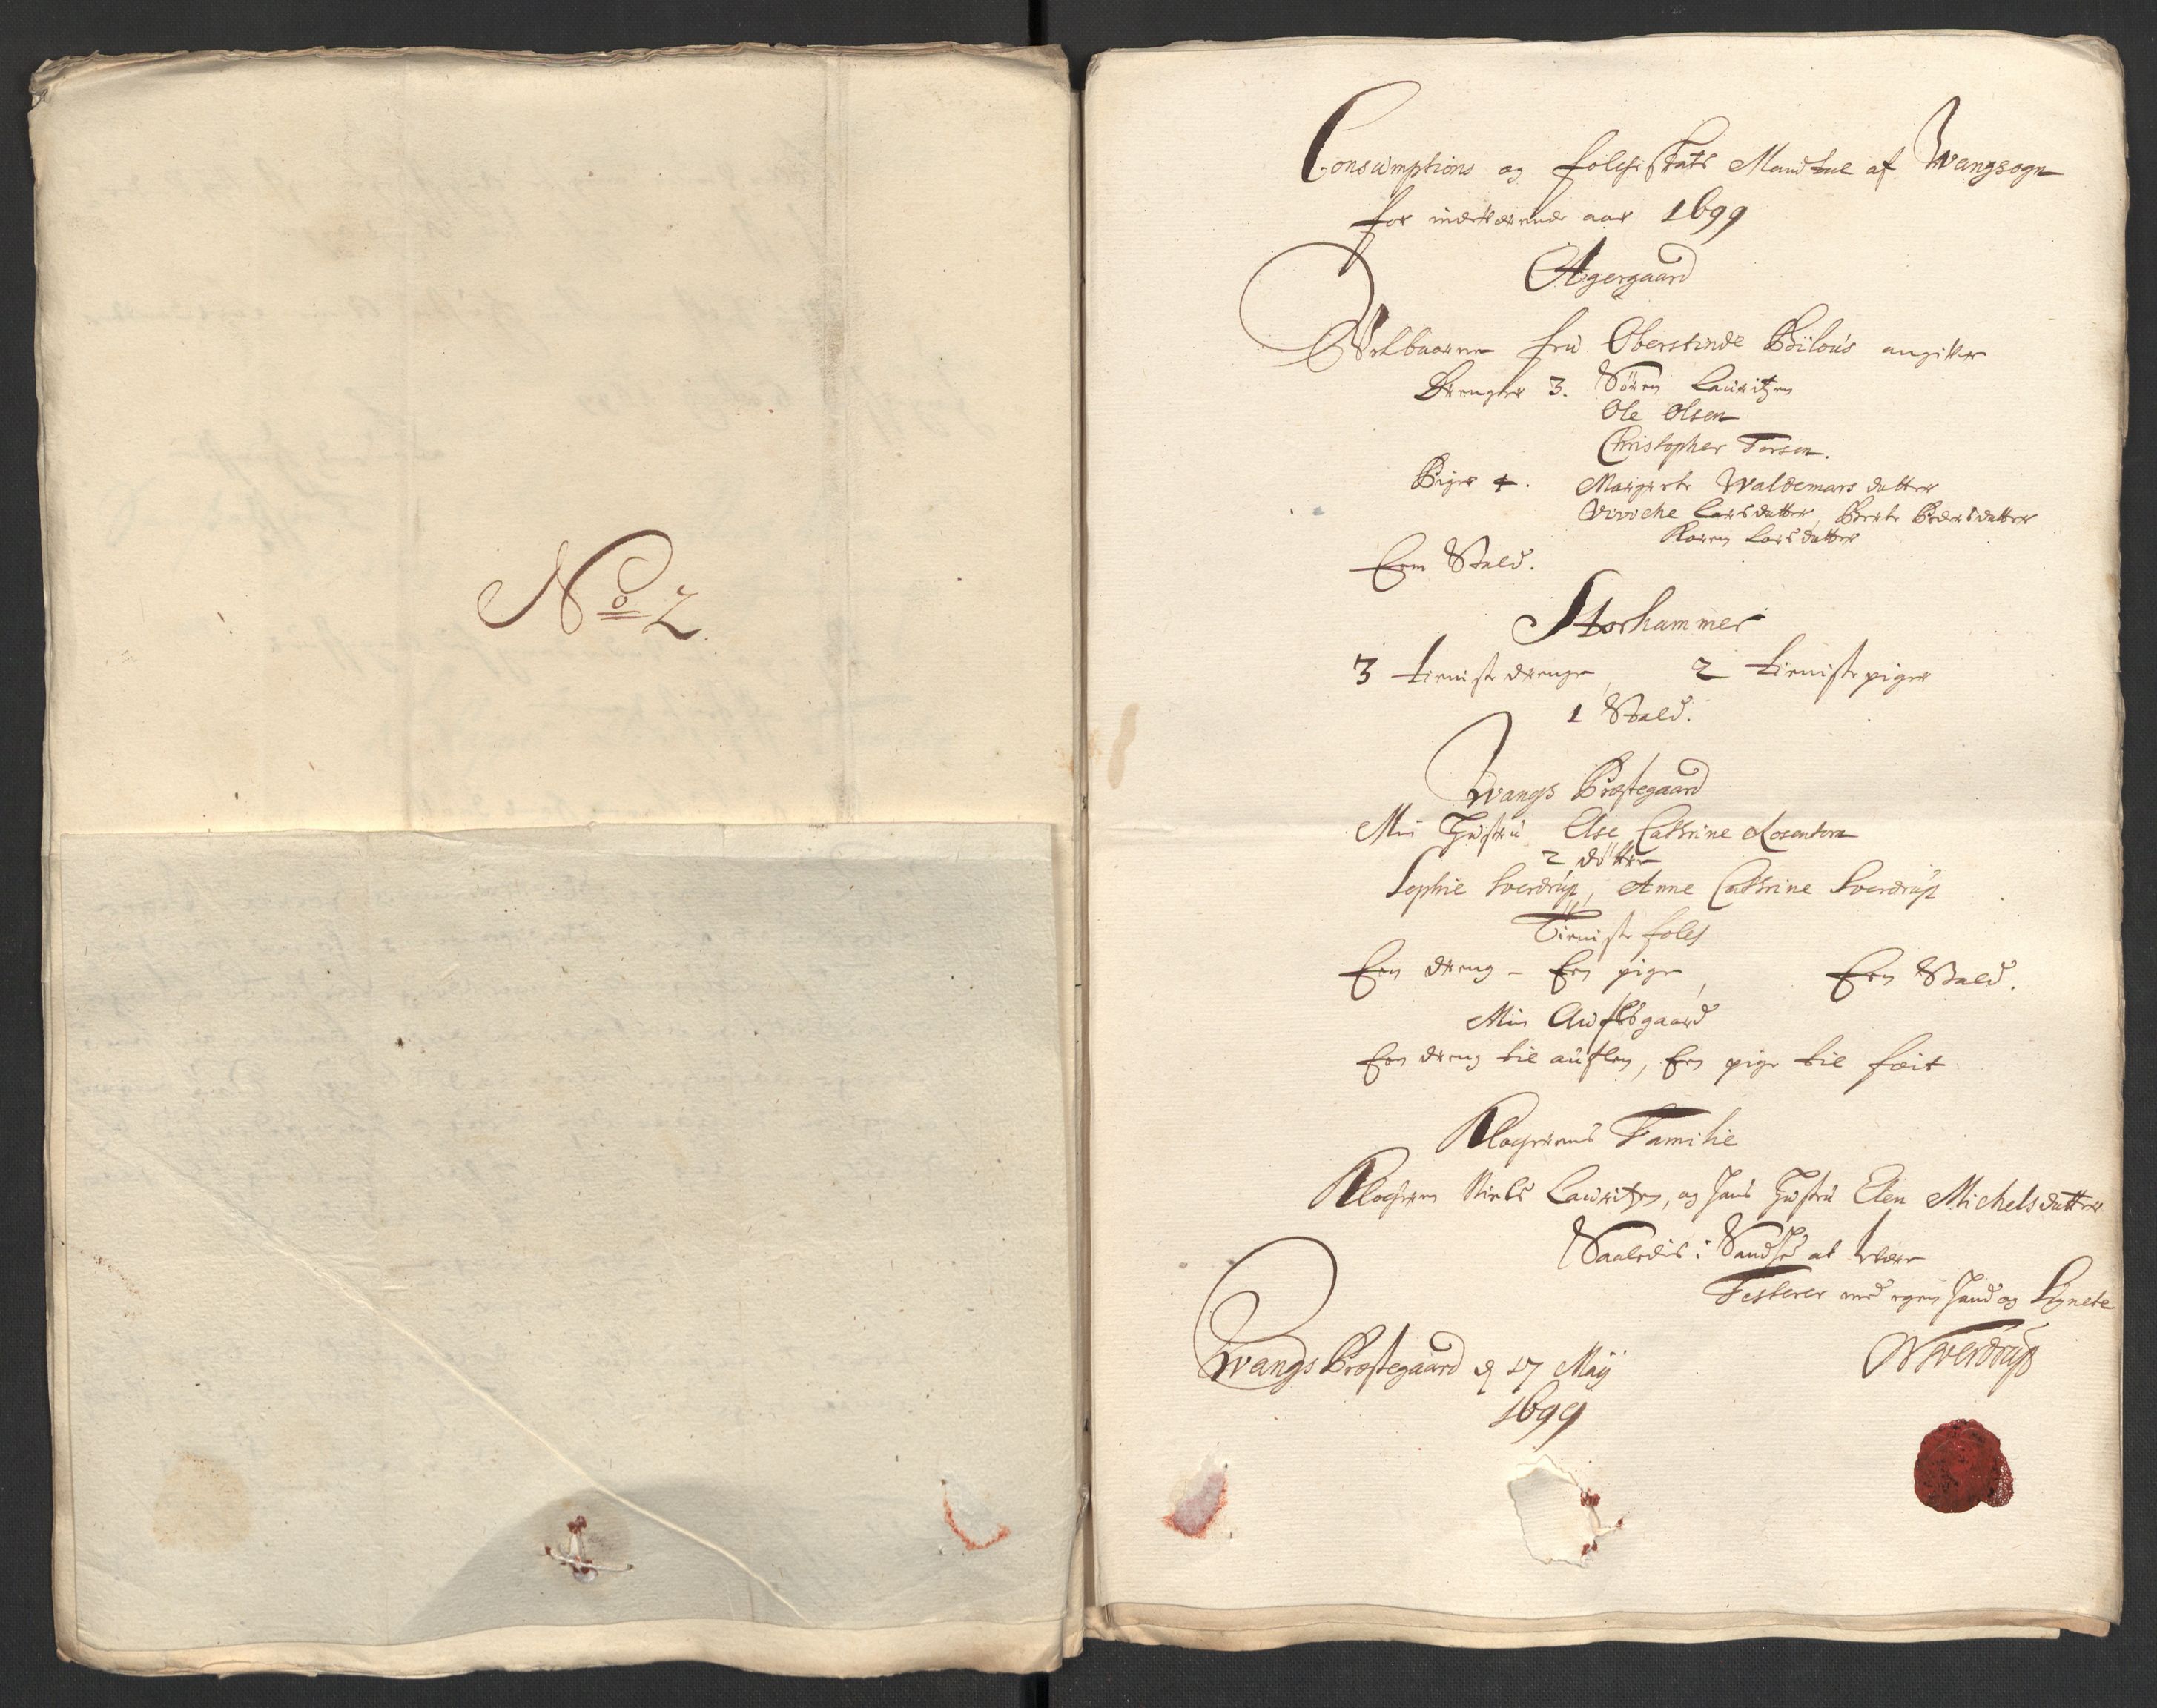 No 2.
Consumptions og folcheskats Mandtal af Wangsogn
for inderværende aar 1699
Agergaard
Velbaarne frü Oberstinde Bülous angifver
Drenger 3. Sören Lauritzen
Ole Olsen
Christopher Torsen.
Piger 4. Margrete Waldemars datter
Vivicke Larsdatter, Berte Pedersdatter
Karen Larsdatter
Een Stald.
Storhammer
3 tieniste drenge, 2 tieniste piger
1 Stald.
Wangs Præstegaard
Min Hustrü Else Cathrine Rosentorn
2 døttre
Sophie Sverdrüp, Anne Cathrine Sverdrüp
Tieniste folch
Een dreng - Een pige, Een Stald.
Min Auflsgaard
Een dreng til auflen, Een pige til fæit
Klocherens Familie
Klocheren Niels Lauritzen, og hans Hustrü Elen Michelsdatter
Saaledis i Sandhed at være
Testerer med egen haand og Signete
Wangs Præstegaard d 17 Maij
1699
Sverdrüp